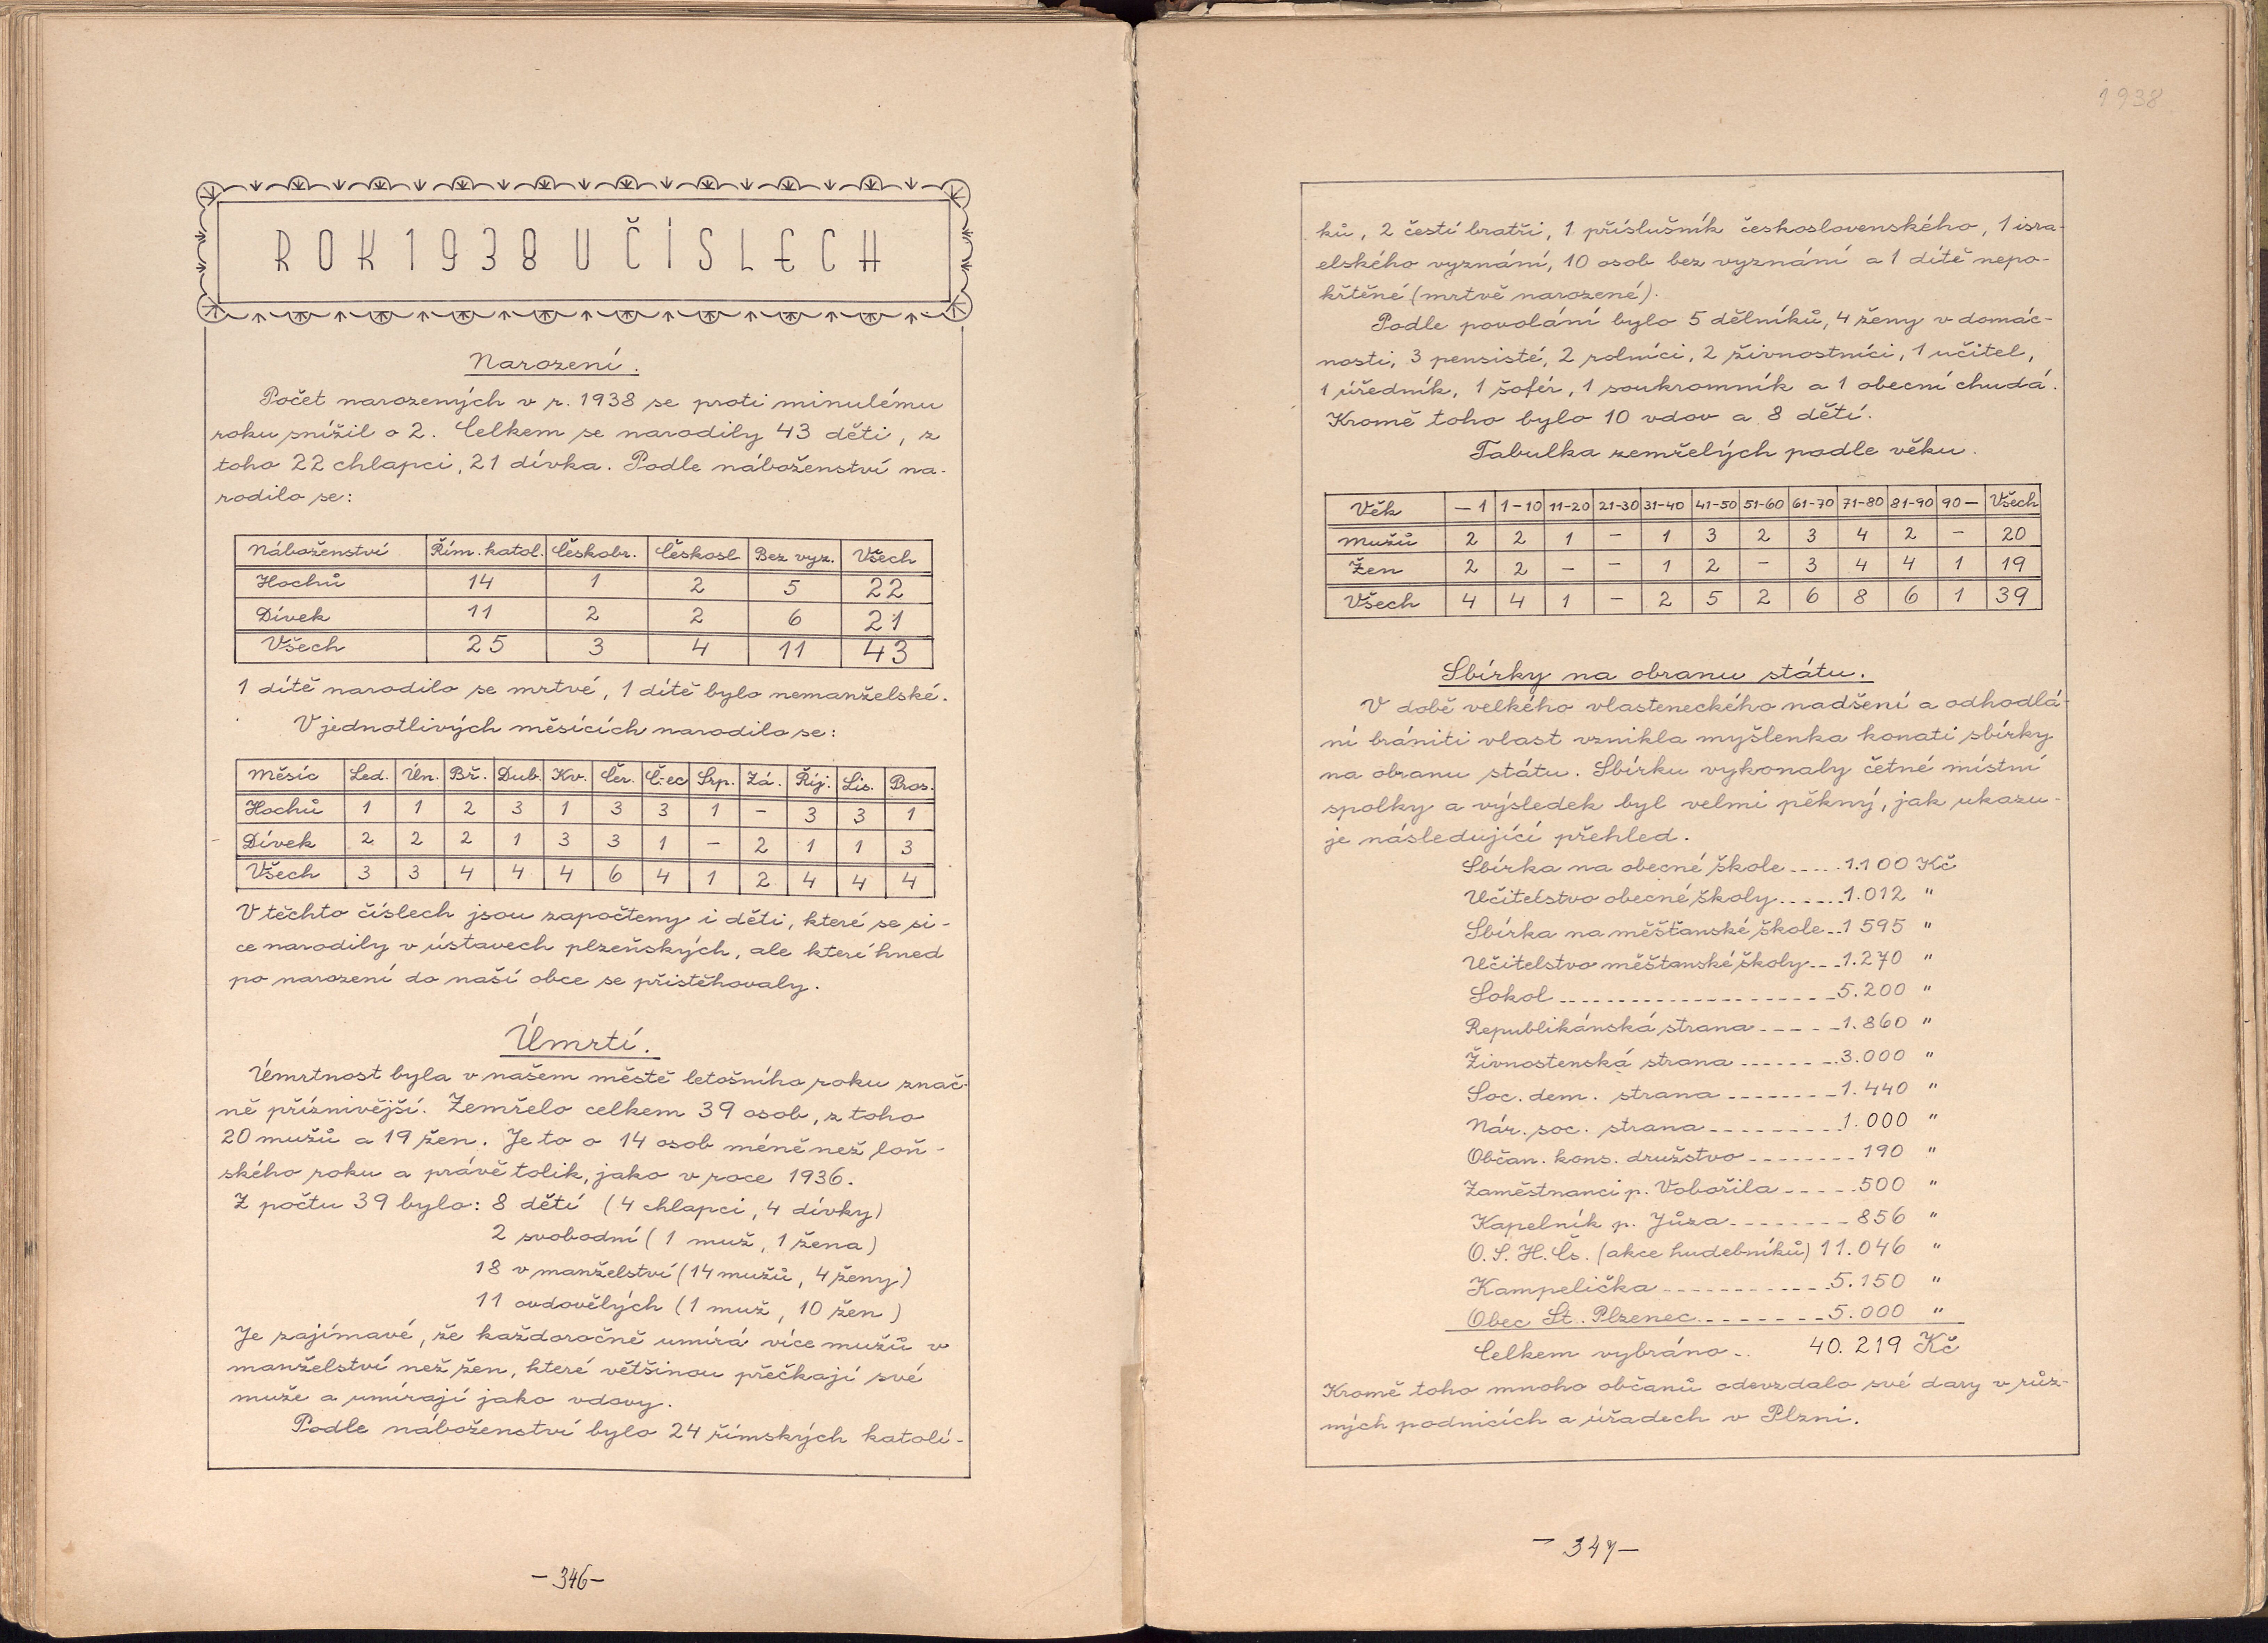 ROK 1938 V ČÍSLECH
Narození.
Počet narozených v r. 1938 se proti minulému
roku snížil o 2. Celkem se narodily 43 děti, z
toho 22 chlapci, 21 dívka. Podle náboženství na-
rodilo se:
Náboženství Řím. katol. Českobr. Českosl Bez vyz. Všech
Hochů 14 1 2 5 22
Dívek 11 2 2 6 21
Všech 25 3 4 11 43
1 dítě narodilo se mrtvé, 1 dítě bylo nemanželské.
V jednotlivých měsících narodilo se:
Měsíc Led. Ún. Bř. Dub. Kv. Čer. Č-ec Srp. Zá. Říj. Lis. Pros.
Hochů 1 1 2 3 1 3 3 1 – 3 3 1
Dívek 2 2 2 1 3 3 1 – 2 1 1 3
Všech 3 3 4 4 4 6 4 1 2 4 4 4
V těchto číslech jsou započteny i děti, které se si-
ce narodily v ústavech plzeňských, ale které hned
po narození do naší obce se přistěhovaly.
Úmrtí.
Úmrtnost byla v našem městě letošního roku znač-
ně příznivější. Zemřelo celkem 39 osob, z toho
20 mužů a 19 žen. Je to o 14 osob méně než loň-
ského roku a právě tolik, jako v roce 1936.
Z počtu 39 bylo: 8 dětí (4 chlapci, 4 dívky)
2 svobodní (1 muž, 1 žena)
18 v manželství (14 mužů, 4 ženy)
11 ovdovělých (1 muž, 10 žen)
Je zajímavé, že každoročně umírá více mužů v
manželství než žen, které většinou přečkají své
muže a umírají jako vdovy.
Podle náboženství bylo 24 římských katolí-
– 346 –
1938
ků, 2 čestí bratři, 1 příslušník československého, 1 isra-
elského vyznání, 10 osob bez vyznání a 1 dítě nepo-
křtěné (mrtvě narozené).
Podle povolání bylo 5 dělníků, 4 ženy v domác-
nosti, 3 pensisté, 2 rolníci, 2 živnostníci, 1 učitel,
1 úředník, 1 šofér, 1 soukromník a 1 obecní chudá.
Kromě toho bylo 10 vdov a 8 dětí.
Tabulka zemřelých podle věku.
Věk – 1 1-10 11-20 21-30 31-40 41-50 51-60 61-70 71-80 81-90 90– Všech
Mužů 2 2 1 – 1 3 2 3 4 2 – 20
Žen 2 2 – – 1 2 – 3 4 4 1 19
Všech 4 4 1 – 2 5 2 6 8 6 1 39
Sbírky na obranu státu.
V době velkého vlasteneckého nadšení a odhodlá-
ní brániti vlast vznikla myšlenka konati sbírky
na obranu státu. Sbírku vykonaly četné místní
spolky a výsledek byl velmi pěkný, jak ukazu-
je následující přehled.
Sbírka na obecné škole ..... 1.100 Kč
Učitelstvo obecné školy ...... 1.012 "
Sbírka na měšťanské škole .. 1595 "
Učitelstvo měšťanské školy ... 1.270 "
Sokol ........................ 5.200 "
Republikánská strana ...... 1.860 "
Živnostenská strana ........ 3.000 "
Soc. dem. strana ......... 1.440 "
Nár. soc. strana .......... 1.000 "
Občan. kons. družstvo ........ 190 "
Zaměstnanci p. Vobořila ..... 500 "
Kapelník p. Jůza ........ 856 "
O.S.H.Čs. (akce hudebníků) 11.046 "
Kampelička ............ 5.150 "
Obec St. Plzenec ........ 5.000 "
Celkem vybráno .. 40.219 Kč
Kromě toho mnoho občanů odevzdalo své dary v růz-
ných podnicích a úřadech v Plzni.
– 347 –